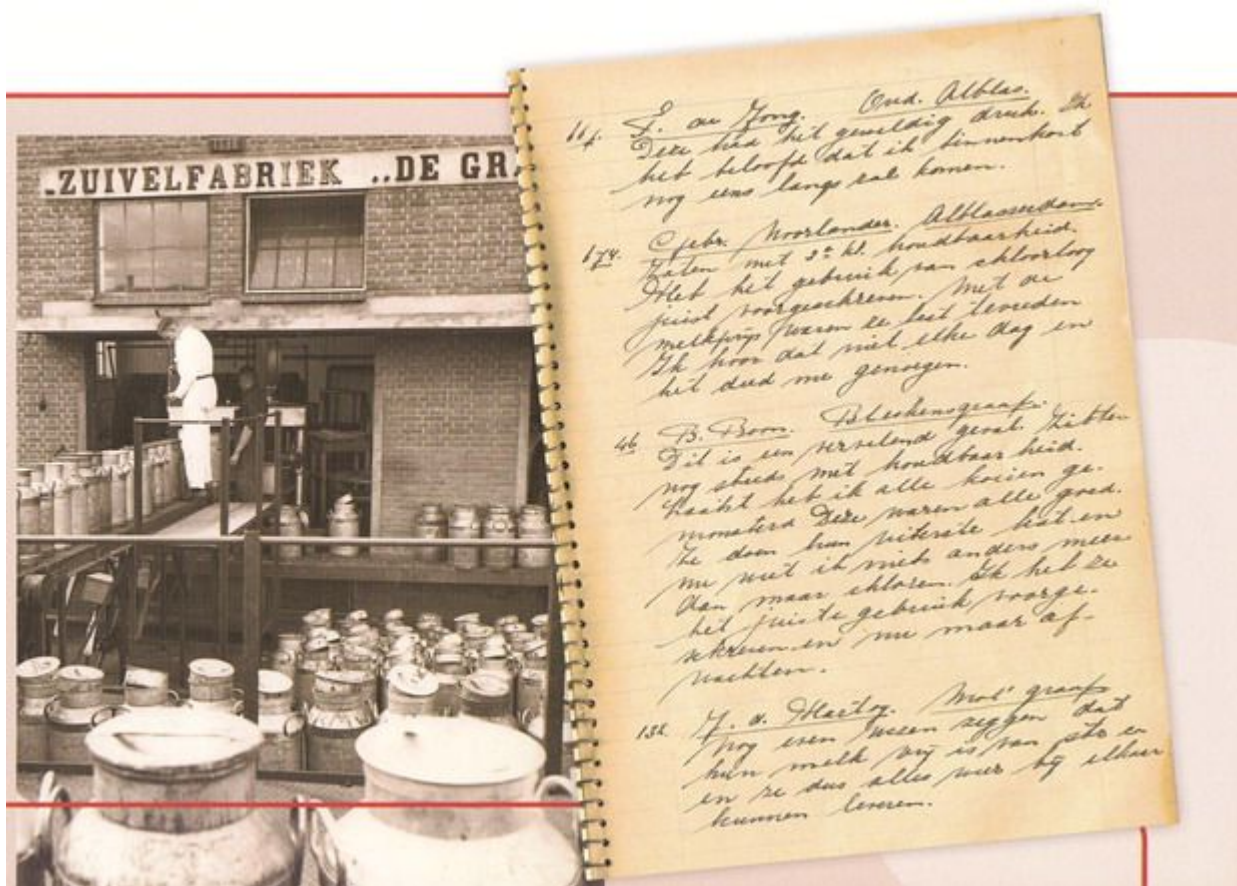 „ZUIVELFABRIEK „DE GRA
J. de Jong. Oud. Alblas.
Deze had het geweldig druk. Ik
heb beloofd dat ik binnenkort
nog eens langs zal komen.
674. Gebr. Noorlander. Alblasserdam.
Zaten met 2e kl. houdbaarheid.
Heb het gebruik van chloorloog
juist voorgeschreven. Met de
melkprijs waren ze best tevreden
Ik hoor dat niet elke dag en
het deed me genoegen.
46 B. Boon. Bleskensgraaf.
Dit is een vervelend geval. Zitten
nog steeds met houdbaarheid.
Laatst heb ik alle koeien ge-
monsterd Deze waren alle goed.
Ze doen hun uiterste best en
nu weet ik niets anders meer
dan maar chloren. Ik heb ze
het juiste gebruik voorge-
schreven en nu maar af-
wachten.
138. J. d. Hartog. Mol' graaf
Nog even wezen zeggen dat
hun melk vrij is van str en
en ze dus alles weer bij elkaar
kunnen leveren.